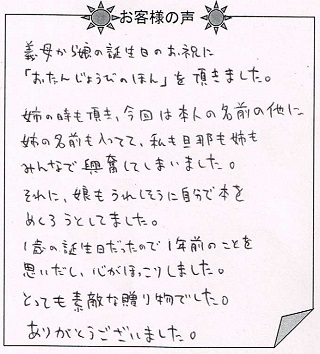 お客様の声
義母から娘の誕生日のお祝に
「おたんじょうびのほん」を頂きました。
姉の時も頂き、今回は本人の名前の他に
姉の名前も入ってて、私も旦那も姉も
みんなで興奮してしまいました。
それに、娘もうれしそうに自分で本を
めくろうとしてました。
1歳の誕生日だったので1年前のことを
思いだし、心がほっこりしました。
とっても素敵な贈り物でした。
ありがとうございました。